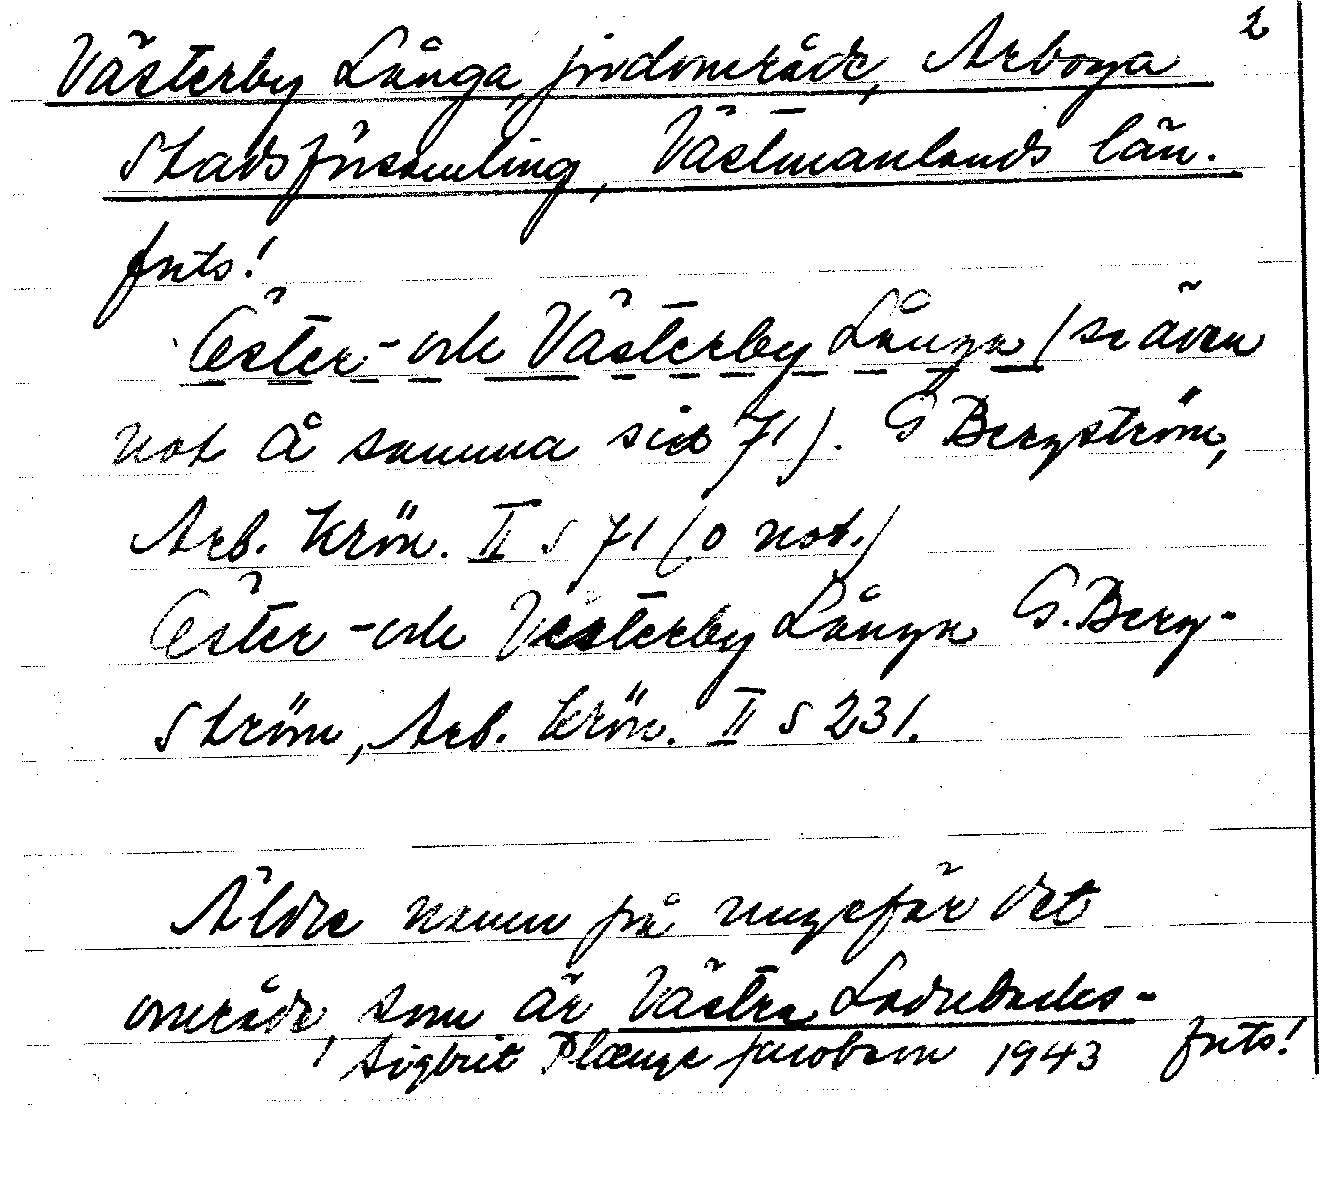 2
Västerby Långa, jordområde, Arboga
Stadsförsamling, Västmanlands län.
forts!
Öster- och Västerby Långa (se även
not å samma sida 71). G Bergström,
Arb. Krön. II s 71 (o not.)
Öster- och Vesterby Långa G. Berg-
ström, Arb. krön. II s 231.
Äldre namn på ungefär det
område, som är Västra Ladubacks-
Sigbrit Plænge Jacobson 1943 forts!